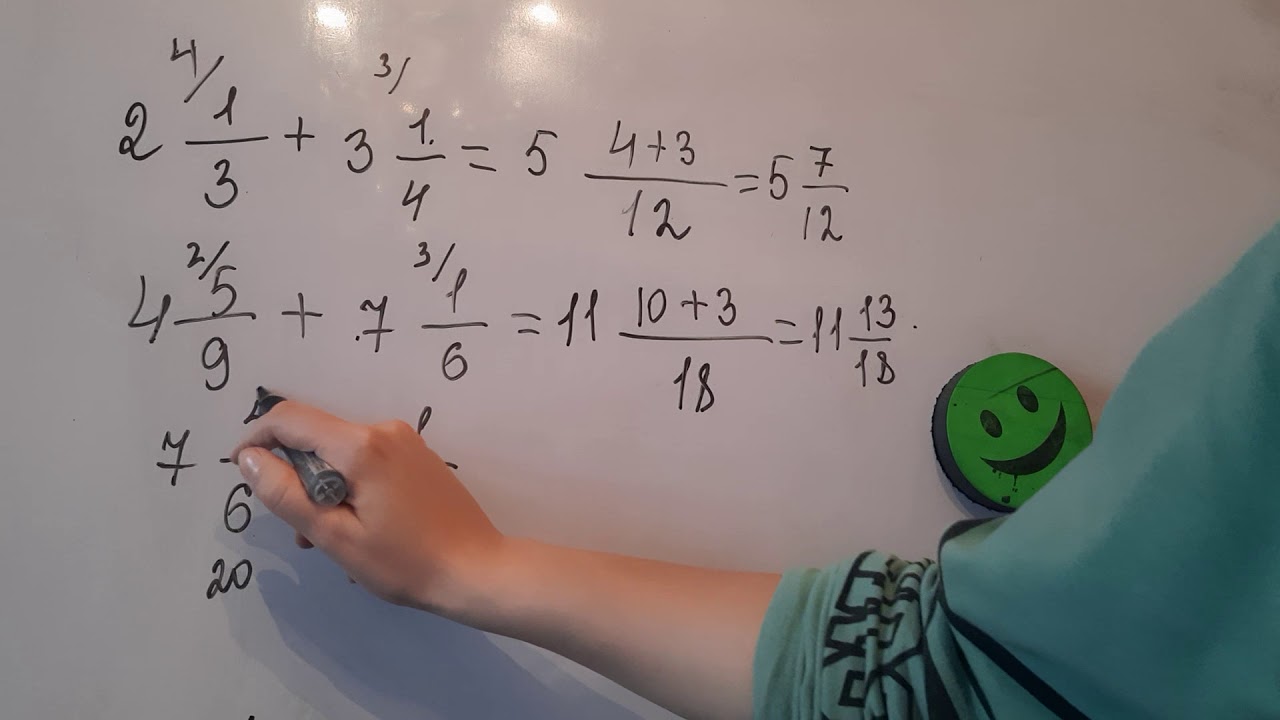 2 4/ 1/3 + 3 3/ 1/4 = 5 4+3/12 = 5 7/12
4 2/ 5/9 + 7 3/ 1/6 = 11 10+3/18 = 11 13/18.
7
6
20